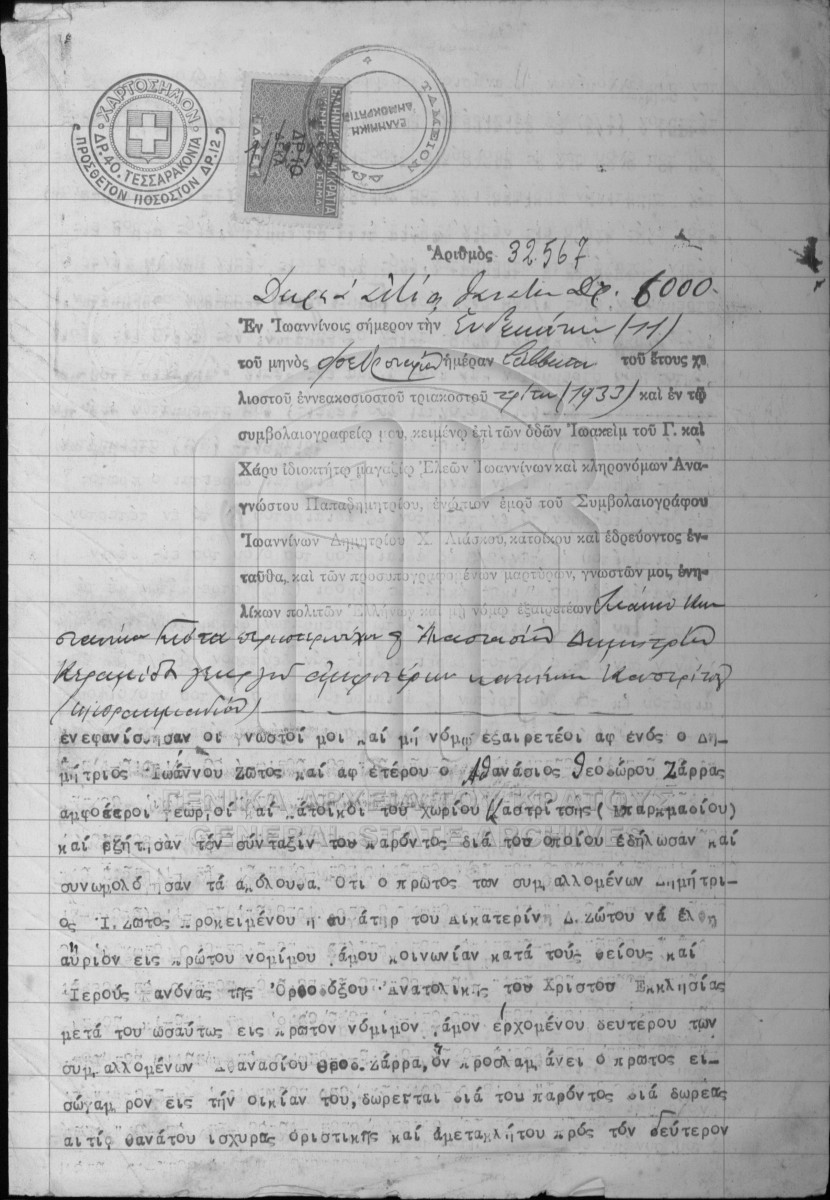 ΧΑΡΤΟΣΗΜΟΝ
ΔΡ. 40. ΤΕΣΣΑΡΑΚΟΝΤΑ
ΠΡΟΣΘΕΤΟΝ ΠΟΣΟΣΤΟΝ ΔΡ. 12
ΕΛΛΗΝΙΚΗ ΔΗΜΟΚΡΑΤΙΑ
ΔΡ. 10
ΕΛΛΗΝΙΚΗ ΔΗΜΟΚΡΑΤΙΑ
ΤΑΜΕΙΟΝ
Ἀριθμὸς 32567
Δωρεὰ αἰτίᾳ θανάτου Δρ. 6000
Ἐν Ἰωαννίνοις σήμερον τὴν Ἑνδεκάτην (11)
τοῦ μηνὸς Φεβρουαρίου ἡμέραν Σάββατον τοῦ ἔτους χι
λιοστοῦ ἐννεακοσιοστοῦ τριακοστοῦ τρίτου (1933) καὶ ἐν τῷ
συμβολαιογραφείῳ μου, κειμένῳ ἐπὶ τῶν ὁδῶν Ἰωακεὶμ τοῦ Γ. καὶ
Χάρυ ἰδιοκτήτῳ μαγαζίῳ Ἐλεῶν Ἰωαννίνων καὶ κληρονόμων Ἀνα-
γνώστου Παπαδημητρίου, ἐνώπιον ἐμοῦ τοῦ Συμβολαιογράφου
Ἰωαννίνων Δημητρίου Χ. Λιάσκου, κατοίκου καὶ ἑδρεύοντος ἐν-
ταῦθα, καὶ τῶν προσυπογραφομένων μαρτύρων, γνωστῶν μοι, ἐνη-
λίκων πολιτῶν Ἑλλήνων καὶ μὴ νόμῳ ἐξαιρετέων
Ἀναστασίου Δημητρίου
Κεραμίδα γεωργοῦ ἀμφοτέρων κατοίκων Καστρίτσης
ενεφανίσθησαν οι γνωστοί μοι καί μή νόμῳ εξαιρετέοι αφ ενός ο Δη-
μήτριος Ἰωάννου Ζώτος καί αφ ετέρου ο Αθανάσιος Θεοδώρου Ζάρρας
αμφότεροι γεωργοί καί κάτοικοι του χωρίου Καστρίτσης (Μπαρκμαδίου)
καί εζήτησαν τόν σύνταξιν του παρόντος διά του οποίου εδήλωσαν καί
συνωμολόγησαν τά ακόλουθα. Οτι ο πρώτος των συμβαλλομένων Δημήτρι-
ος Ἰ. Ζώτος προκειμένου η θυγάτηρ του Αικατερίνη Δ. Ζώτου νά έλθη
αύριον εις πρώτου νομίμου γάμου κοινωνίαν κατά τούς θείους καί
Ἱερούς κανόνας της Ὀρθοδόξου Ἀνατολικής του Χριστού Εκκλησίας
μετά του ωσαύτως εις πρώτον νόμιμον γάμον ερχομένου δευτέρου των
συμβαλλομένων Αθανασίου Θεοδ. Ζάρρα, ὅν προσλαμβάνει ο πρώτος ει-
σώγαμβρον εις τήν οικίαν του, δωρείται διά του παρόντος διά δωρεάς
αιτίᾳ θανάτου ισχυράς οριστικής καί αμετακλήτου πρός τόν δεύτερον
ΓΕΝΙΚΑ ΑΡΧΕΙΑ ΤΟΥ ΚΡΑΤΟΥΣ
GENERAL STATE ARCHIVES